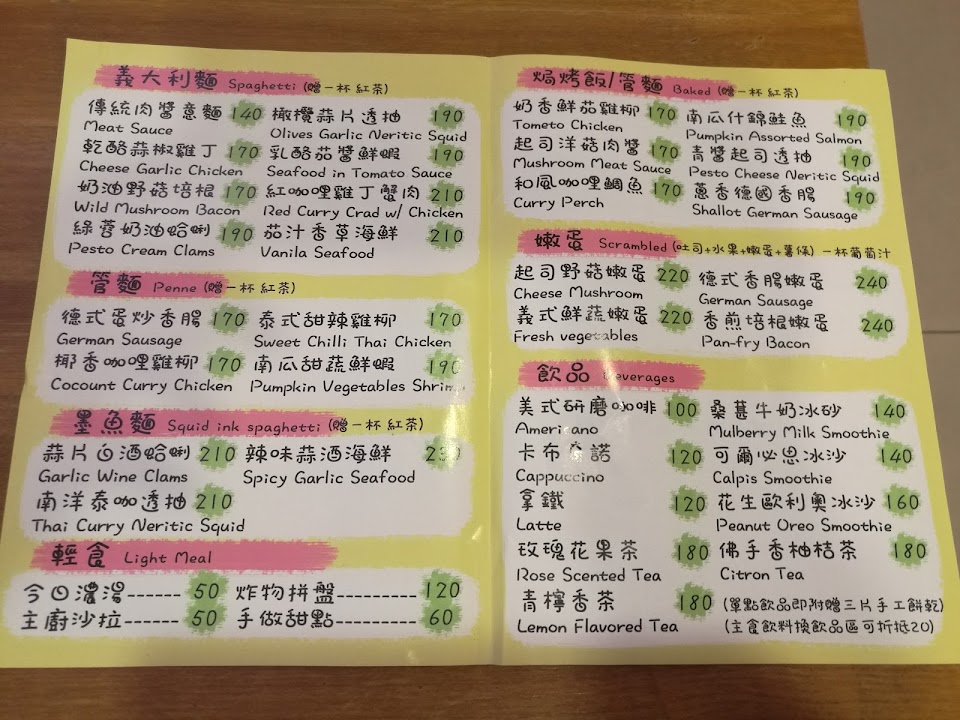 義大利麵 Spaghetti (贈一杯紅茶)
傳統肉醬意麵 140 橄欖蒜片透抽 190
Meat Sauce Olives Garlic Neritic Squid
乾酪蒜椒雞丁 170 乳酪茄醬鮮蝦 190
Cheese Garlic Chicken Seafood in Tomato Sauce
奶油野菇培根 170 紅咖哩雞丁蟹肉 210
Wild Mushroom Bacon Red Curry Crad w/ Chicken
綠蔻奶油蛤蜊 190 茄汁香草海鮮 210
Pesto Cream Clams Vanila Seafood
管麵 Penne (贈一杯紅茶)
德式蛋炒香腸 170 泰式甜辣雞柳 170
German Sausage Sweet Chilli Thai Chicken
椰香咖哩雞柳 170 南瓜甜蔬鮮蝦 190
Cocount Curry Chicken Pumpkin Vegetables Shrimp
墨魚麵 Squid ink spaghetti (贈一杯紅茶)
蒜片白酒蛤蜊 210 辣味蒜酒海鮮 230
Garlic Wine Clams Spicy Garlic Seafood
南洋泰咖透抽 210
Thai Curry Neritic Squid
輕食 Light Meal
今日濃湯------ 50 炸物拼盤--------- 120
主廚沙拉------ 50 手做甜點--------- 60
焗烤飯/管麵 Baked (贈一杯紅茶)
奶香鮮茄雞柳 170 南瓜什錦鮭魚 190
Tometo Chicken Pumpkin Assorted Salmon
起司洋菇肉醬 170 青醬起司透抽 190
Mushroom Meat Sauce Pesto Cheese Neritic Squid
和風咖哩鯛魚 170 蔥香德國香腸 190
Curry Perch Shallot German Sausage
嫩蛋 Scrambled (吐司+水果+嫩蛋+薯條) 一杯葡萄汁
起司野菇嫩蛋 220 德式香腸嫩蛋 240
Cheese Mushroom German Sausage
義式鮮蔬嫩蛋 220 香煎培根嫩蛋 240
Fresh vegetables Pan-fry Bacon
飲品 Beverages
美式研磨咖啡 100 桑葚牛奶冰砂 140
Americano Mulberry Milk Smoothie
卡布奇諾 120 可爾必思冰沙 140
Cappuccino Calpis Smoothie
拿鐵 120 花生歐利奧冰沙 160
Latte Peanut Oreo Smoothie
玫瑰花果茶 180 佛手香柚桔茶 180
Rose Scented Tea Citron Tea
青檸香茶 180 (單點飲品即附贈三片手工餅乾)
Lemon Flavored Tea (主食飲料換飲品區可折抵20)